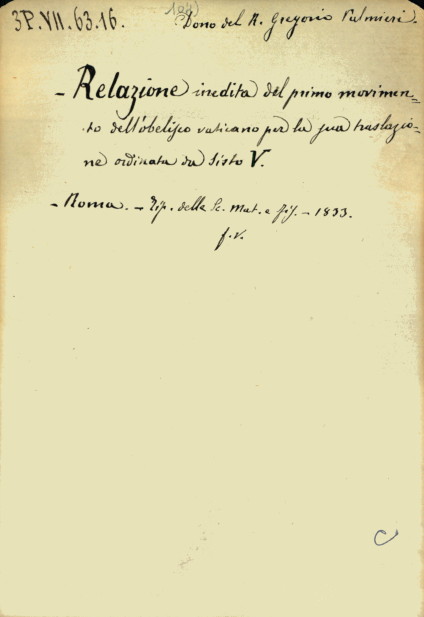 3P.VII.63.16.
Dono del R. Gregorio Palmieri.
- Relazione inedita del primo movimen=
to dell'obelisco vaticano per la sua traslazio=
ne ordinata da Sisto V.
- Roma. - Tip. delle Sc. Mat. e fis. - 1833.
f.v.